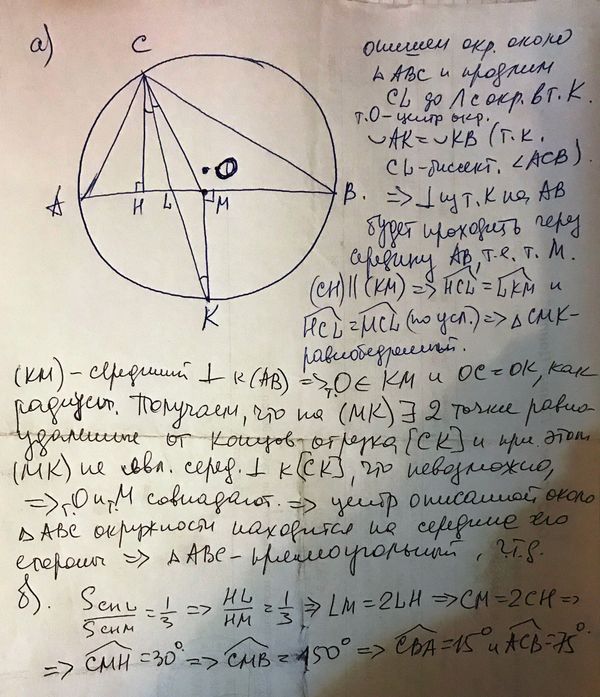 а)
C
A
H
L
M
O
B.
K
опишем окр. около
△ABC и продлим
CL до ∩ с окр. в т. K.
т.O-центр окр.
◡AK=◡KB (т.к.
CL-биссект. ∠ACB).
=> ⊥ из т. K на AB
будет проходить через
середину AB, т.е. т. M.
(CH)∥(KM) => HCL = LKM и
HCL = MCL (по усл.) => △CMK-
равнобедренный.
(KM)-серединный ⊥ к (AB) => т.O∈KM и OC=OK, как
радиусы. Получаем, что на (MK) ∃ 2 точки равно-
удаленные от концов отрезка [CK] и при этом
(MK) не явл. серед. ⊥ к [CK], что невозможно,
=> т.O и т.M совпадают. => центр описанной около
△ABC окружности находится на середине его
стороны => △ABC-прямоугольный, ч.т.д.
б). S CHL / S CHM = 1/3 => HL/HM = 1/3 => LM=2LH => CM=2CH =>
=> CMH = 30° => CMB = 150° => CBA = 15° и ACB = 75°